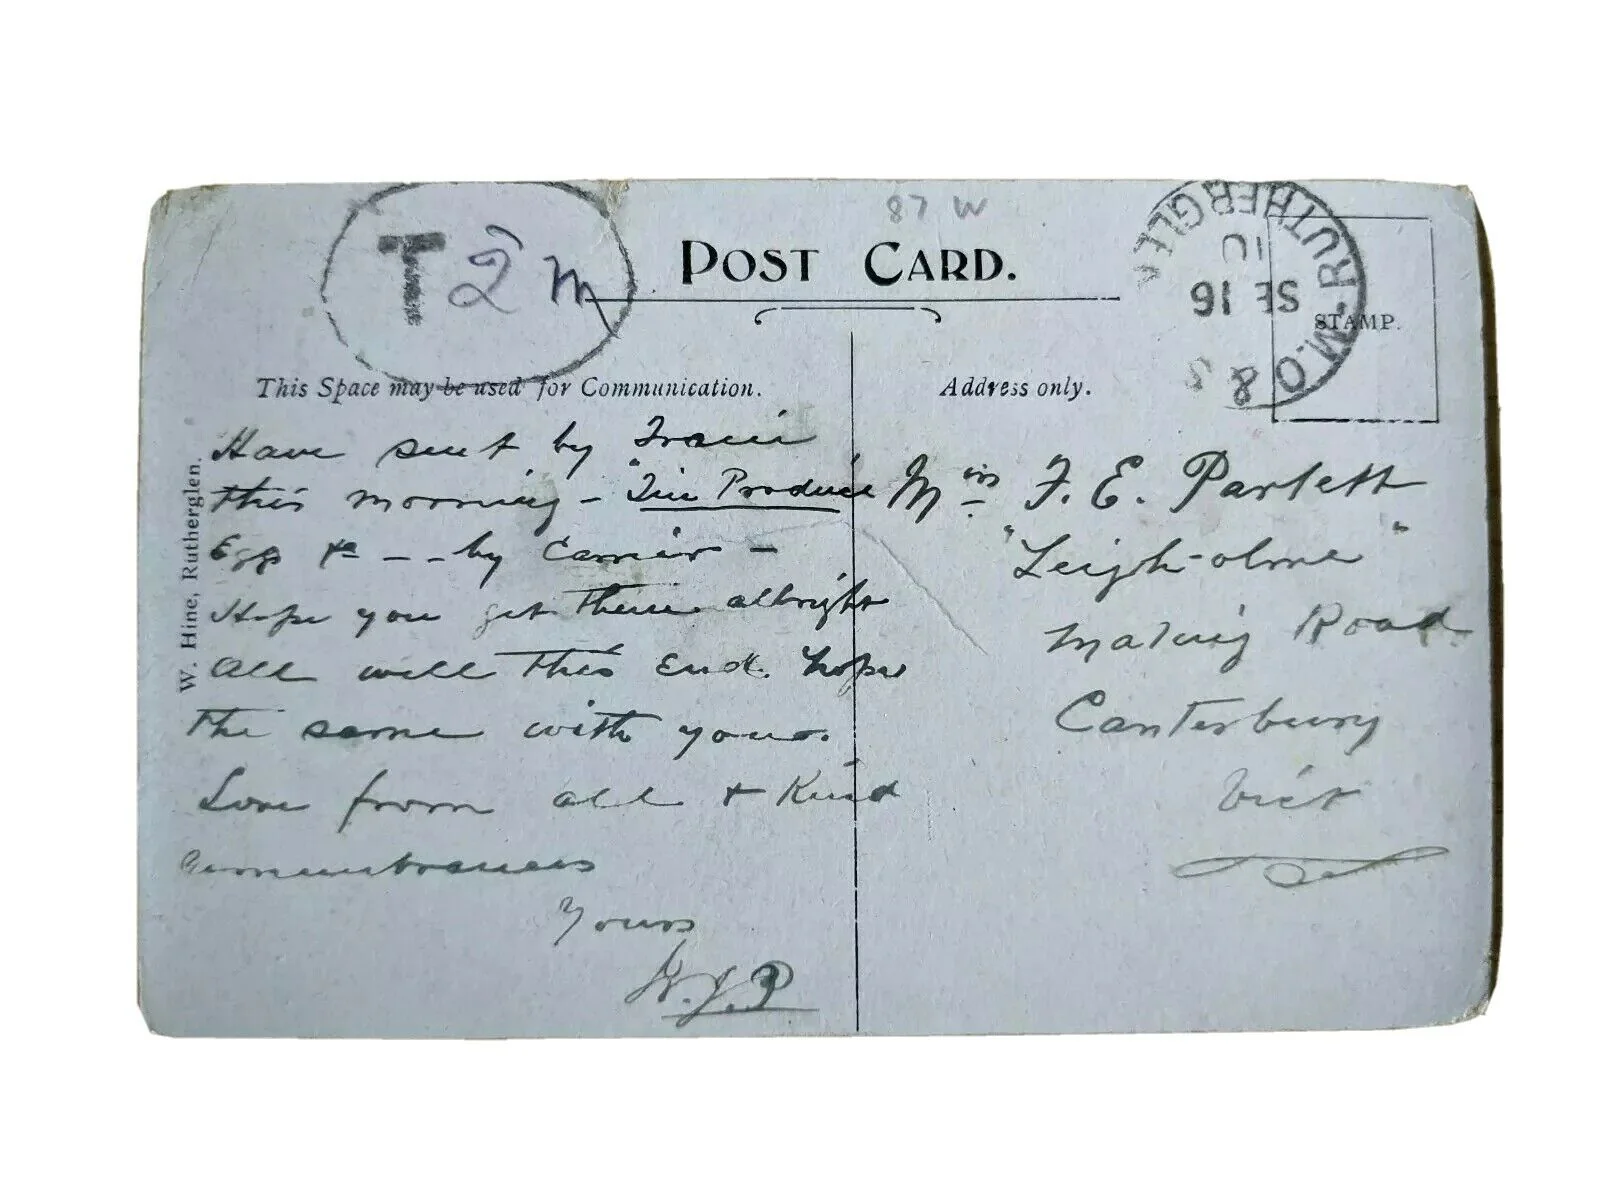 87 W
POST CARD.
T 2 m
M.O. & S RUTHERGLEN
SE 16
10
STAMP.
This Space may be used for Communication.
Address only.
W. Hine, Rutherglen.
Have sent by Train
this morning - "Tin Produce"
Eggs &c - - by Carrier -
Hope you get them allright
All well this End. hope
the same with you.
Love from all & Kind
remembrances
Yours
W.J.P
Miss F. E. Parlett
"Leigh-olme"
Maling Road
Canterbury
Vict